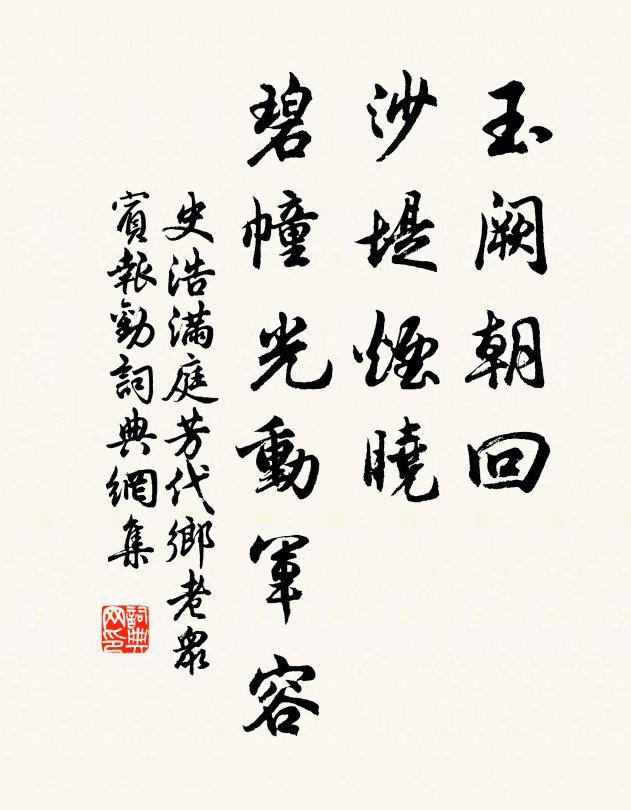 玉阙朝回
沙堤煙曉
碧幢光動軍容
史浩滿庭芳代鄉老衆
賓報勤詞典網集
詞典网印